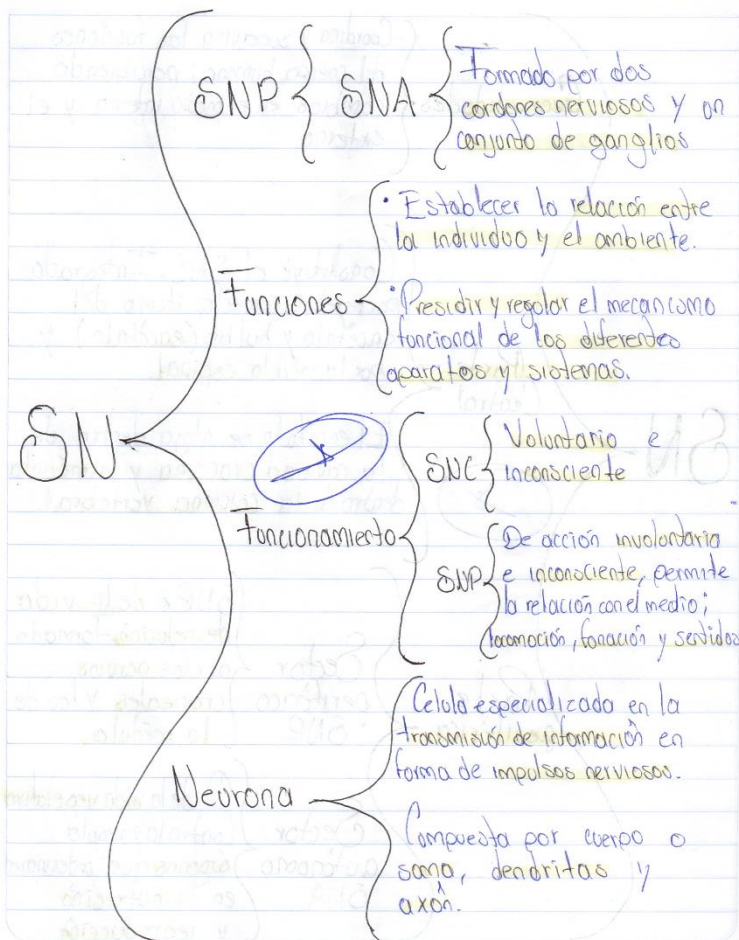 SN
SNP
SNA
Formado por dos
cordones nerviosos y un
conjunto de ganglios
Funciones
• Establecer la relación entre
la individuo y el ambiente.
• Presidir y regular el mecanismo
funcional de los diferentes
aparatos y sistemas.
Funcionamiento
SNC
Voluntario e
inconsciente
SNP
De acción involuntaria
e inconsciente, permite
la relación con el medio;
locomoción, fonación y sentidos
Neurona
Celula especializada en la
transmisión de información en
forma de impulsos nerviosos.
Compuesta por cuerpo o
soma, dendritas y
axón.